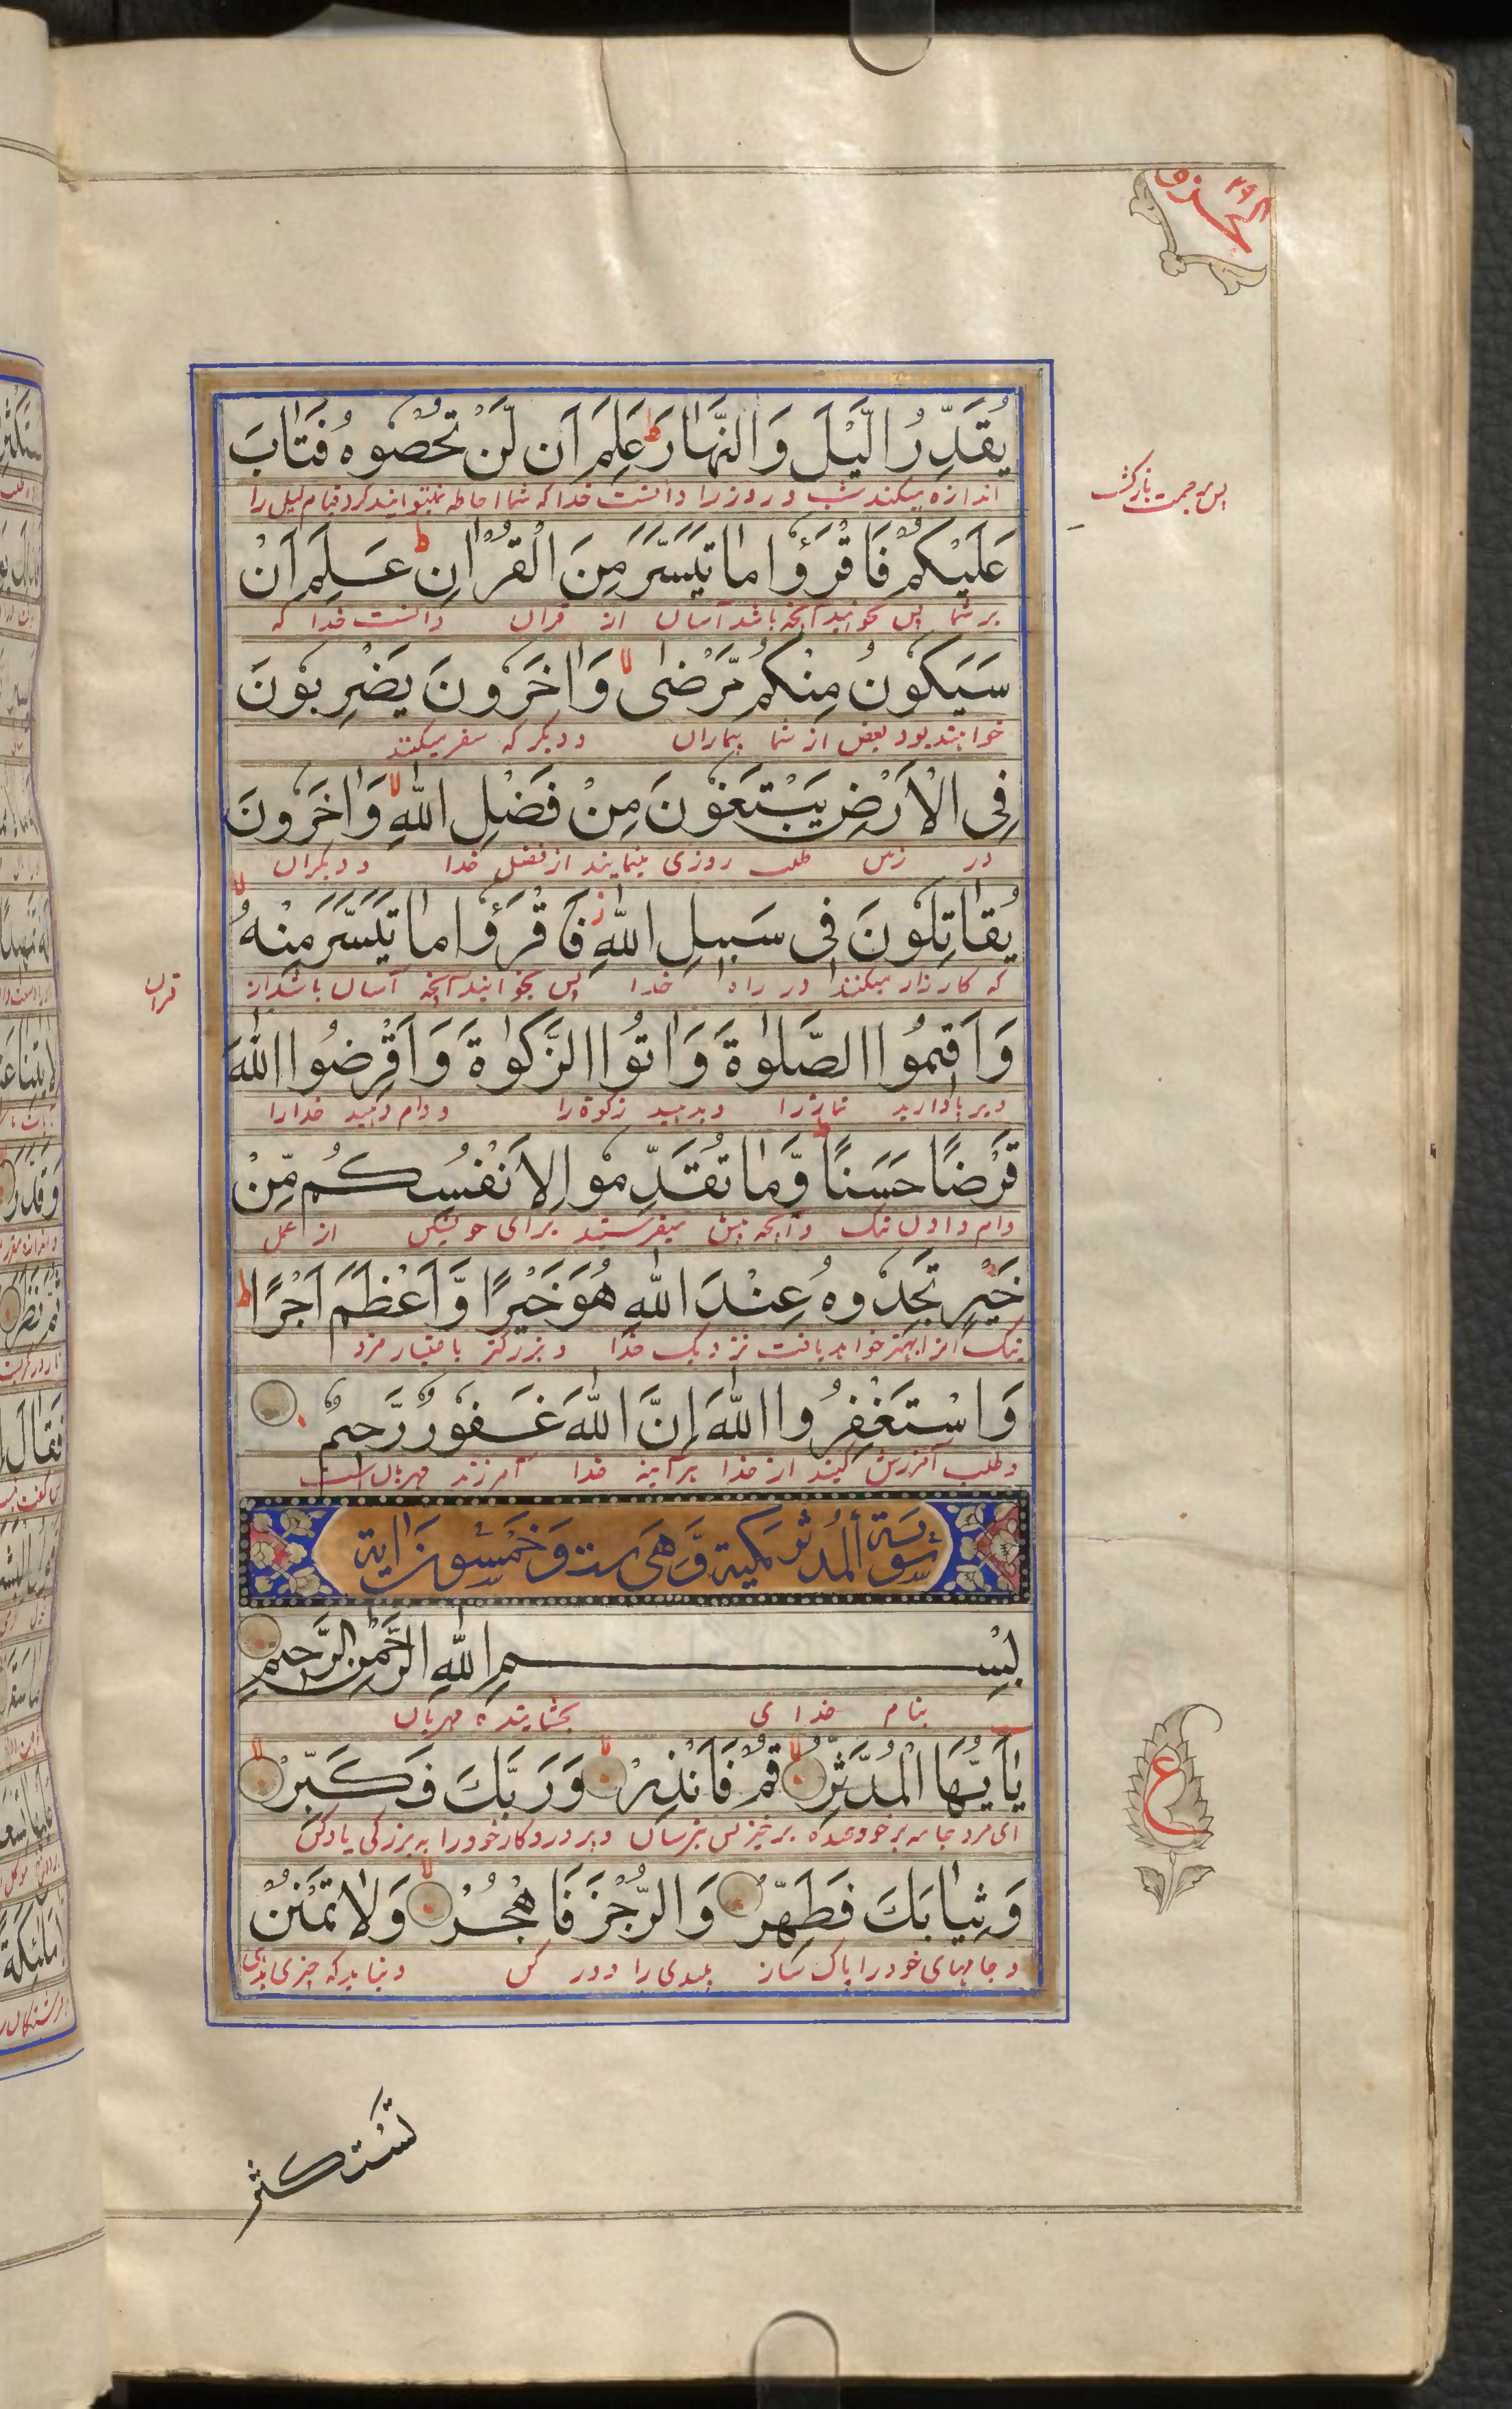 الجزو ٢٩
يُقَدِّرُ الَّيْلَ وَالنَّهَارَ ط عَلِمَ اَن لَّنْ تُحْصُوهُ فَتَابَ
اندازه میکند شب و روز را دانست خدا که شما احاطه نتوانید کرد قیام لیل را
پس برحمت بازگشت
عَلَيْكُمْ فَاقْرَؤُا مَا تَيَسَّرَ مِنَ الْقُرْاٰنِ ط عَلِمَ اَنْ
بر شما پس بخوانید آنچه باشد آسان از قرآن دانست خدا که
سَيَكُونُ مِنْكُمْ مَّرْضٰى لا وَاٰخَرُونَ يَضْرِبُونَ
خواهند بود بعض از شما بیماران و دیگر که سفر میکنند
فِى الْاَرْضِ يَبْتَغُونَ مِنْ فَضْلِ اللّٰهِ لا وَاٰخَرُونَ
در زمین طلب روزی مینمایند از فضل خدا و دیگران
يُقَاتِلُونَ فِى سَبِيلِ اللّٰهِ ز فَاقْرَؤُا مَا تَيَسَّرَ مِنْهُ لا
که کارزار میکنند در راه خدا پس بخوانید آنچه آسان باشد از
قرآن
وَاَقِيمُوا الصَّلٰوةَ وَاٰتُوا الزَّكٰوةَ وَاَقْرِضُوا اللّٰهَ
و برپا دارید نماز را و بدهید زکوة را و وام دهید خدا را
قَرْضًا حَسَنًا ط وَّمَا تُقَدِّمُوا لِاَنْفُسِكُمْ مِّنْ
وام دادن نیک و آنچه پیش میفرستید برای خویش از عمل
خَيْرٍ تَجِدُوهُ عِنْدَ اللّٰهِ هُوَ خَيْرًا وَّاَعْظَمَ اَجْرًا ط
نیک آنرا بهتر خواهید یافت نزدیک خدا و بزرگتر باعتبار مزد
وَاسْتَغْفِرُوا اللّٰهَ اِنَّ اللّٰهَ غَفُورٌ رَّحِيمٌ
و طلب آمرزش کنید از خدا هرآینه خدا آمرزنده مهربان است
سُورَة اَلمُدثر مَكية وَّهىَ ست وَخَمسُونَ اٰية
بِسْمِ اللّٰهِ الرَّحْمٰنِ الرَّحِيمِ
بنام خدای بخشاینده مهربان
يٰاَيُّهَا الْمُدَّثِّرُ لا قُمْ فَاَنْذِرْ لا وَرَبَّكَ فَكَبِّرْ لا
ای مرد جامه بر خود برخیز پس بترسان و پروردگار خود را به بزرگی یاد کن
ع
وَثِيَابَكَ فَطَهِّرْ وَالرُّجْزَ فَاهْجُرْ لا وَلَا تَمْنُنْ
و جامهای خود را پاک ساز پلیدی را دور کن و نباید که چیزی
تَسْتَكْثِرُ